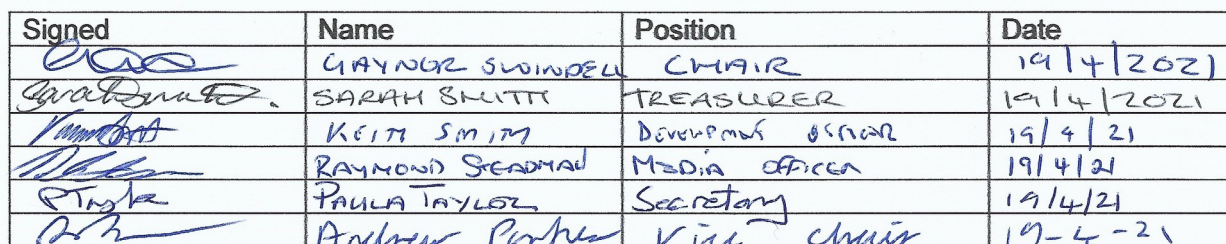 Signed Name Position Date
GAYNOR SWINDELL CHAIR 19/4/2021
SARAH SMITH TREASURER 19/4/2021
KEITH SMITH DEVELOPMENT OFFICER 19/4/21
RAYMOND STEADMAN MEDIA OFFICER 19/4/21
PTaylor PAULA TAYLOR Secretary 19/4/21
Andrew Vice chair 19-4-21